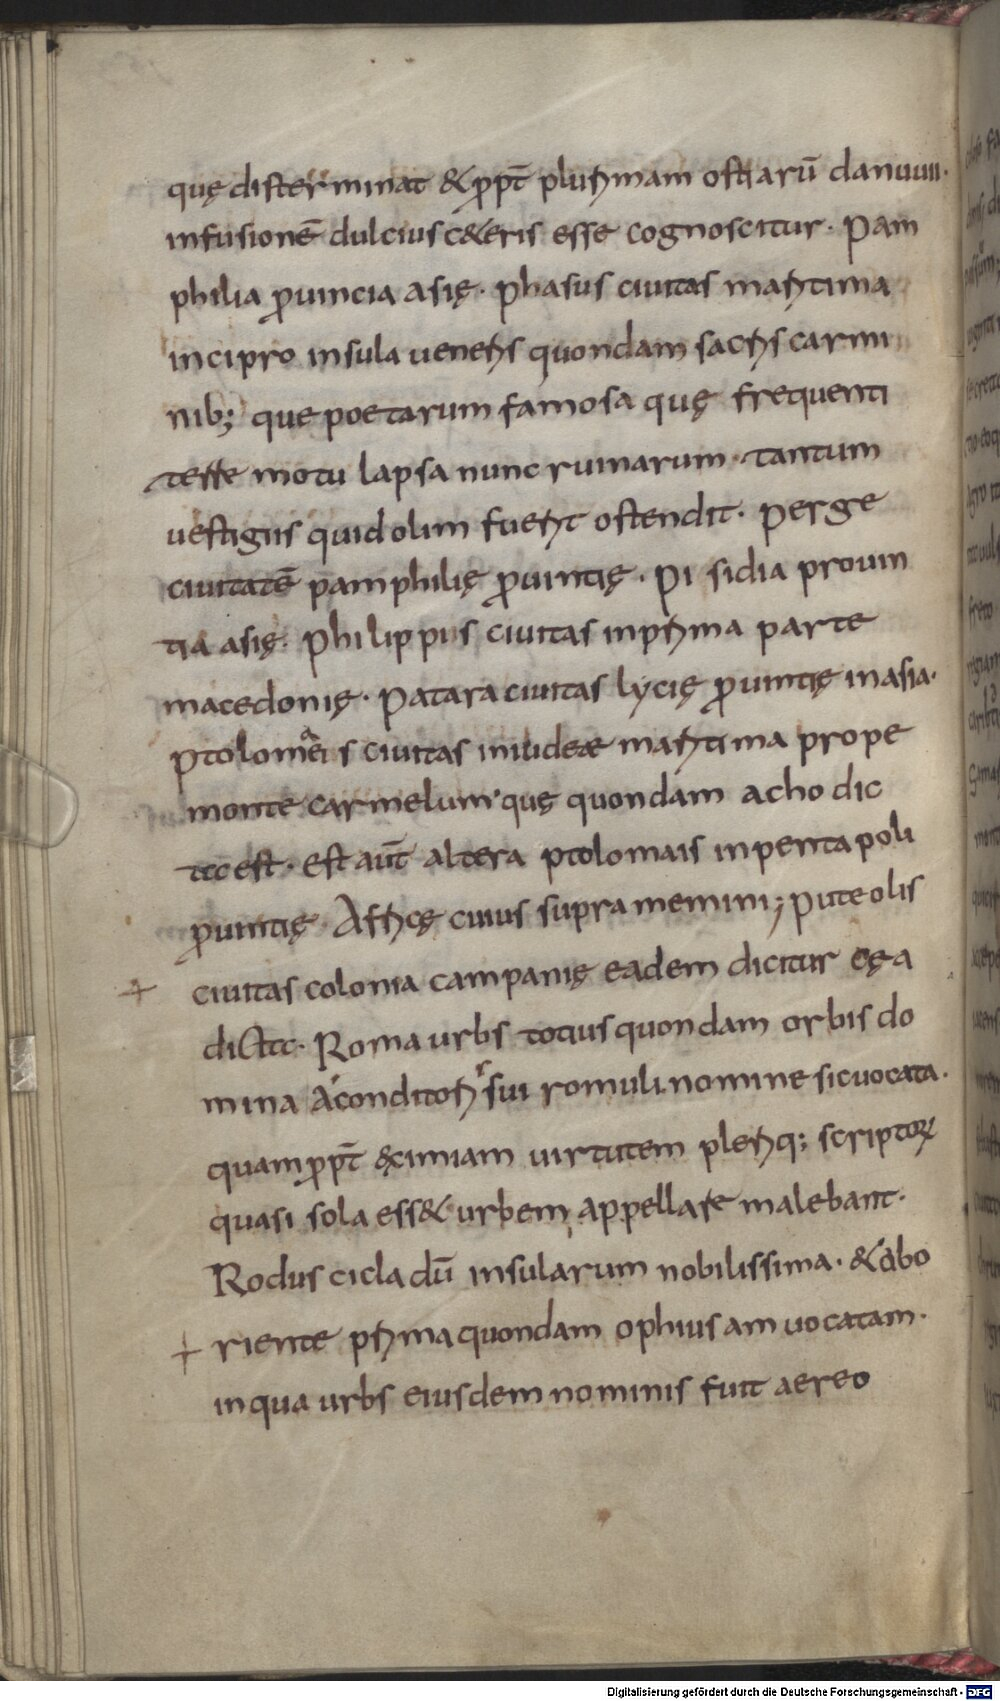 quę disterminat &ꝓpt̄ plurimam ostiarū danuuii·
infusionē dulcius c&eris esse cognoscitur· Pam
philia ꝓuincia asię· Phasus ciuitas maritima
incipro insula ueneris quondam sacris carmi
nib; que poetarum famosa quę frequenti
terre motu lapsa nunc ruinarum· tantum
uestigiis quid olim fuerit ostendit· Perge
ciuitatē pamphilię ꝓuintię· Pi sidia prouin
tia asię· Philippus ciuitas inprima parte
macedonię· Patara ciuitas lycię ꝓuintię inasia·
Ptolomeis ciuitas iniudeæ maritima prope
monte carmelum· quę quondam acho dic
tcc est· est aūt altera ptolomais inpentapoli
ꝓuintię· Africę cuius supra memini; Puteolis
ciuitas colonia campanię eadem dicitur cęa
dictcc· Roma urbs totius quondam orbis do
mina a conditoris sui romuli nomine sic uocata·
quam ꝓpt̄ &cimiam uirtutem pleriq; scriptoꝝ
quasi sola ess& urbem appellare malebant·
Rodus cicladū insularum nobilissima· &abo
riente prima quondam ophiusam uocatam·
inqua urbs eiusdem nominis fuit aereo
Digitalisierung gefördert durch die Deutsche Forschungsgemeinschaft - DFG